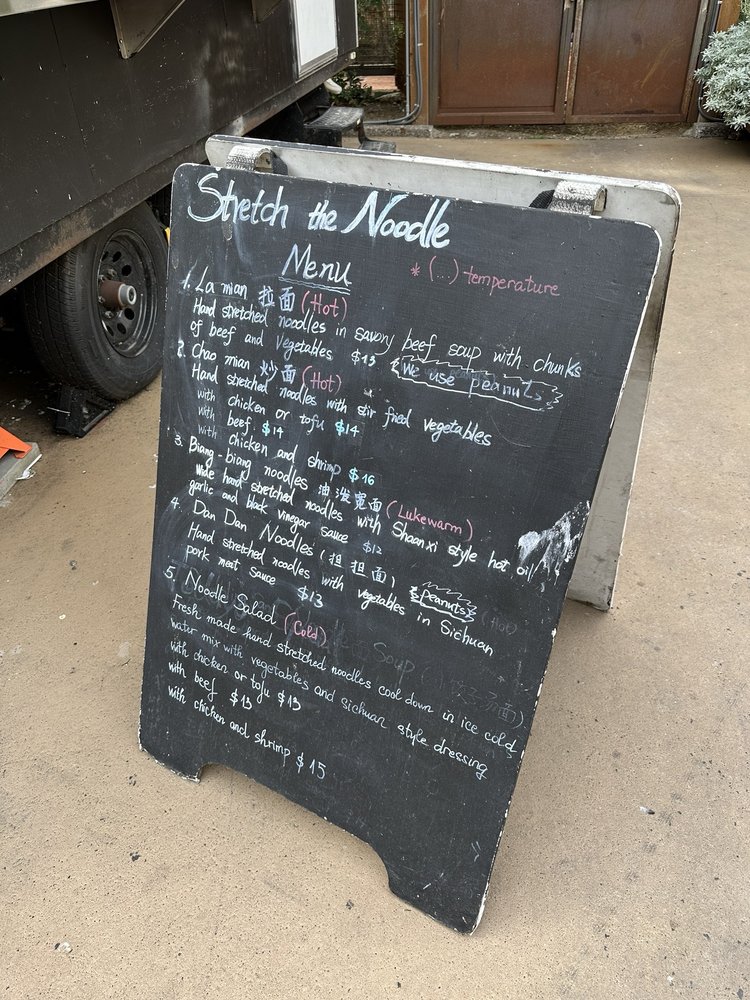 Stretch the Noodle
Menu
* (...) temperature
1. La mian 拉面 (Hot)
Hand stretched noodles in savory beef soup with chunks
of beef and vegetables $13
We use peanuts
2. Chao mian 炒面 (Hot)
Hand stretched noodles with stir fried vegetables
with chicken or tofu $14
with beef $14
with chicken and shrimp $16
3. Biang-biang noodles 油泼宽面 (Lukewarm)
Wide hand stretched noodles with Shaanxi style hot oil/
garlic and black vinegar sauce $12
4. Dan Dan Noodles (担担面) Peanuts (Hot)
Hand stretched noodles with vegetables in Sichuan
pork meat sauce $13
5. Noodle Salad (Cold)
Fresh made hand stretched noodles cool down in ice cold
water mix with vegetables and Sichuan style dressing
with chicken or tofu $13
with beef $13
with chicken and shrimp $15